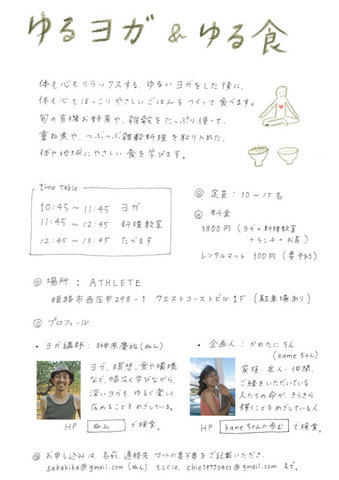 ゆるヨガ & ゆる食
体も心もリラックスする、ゆるいヨガをした後に、
体も心もほっこりやさしいごはんをつくって食べます。
旬の有機お野菜や、雑穀をたっぷり使って、
重ね煮や、つぶつぶ雑穀料理を取り入れた、
体や地球にやさしい食を学びます。
time table
10:45 〜 11:45 ヨガ
11:45 〜 12:45 料理教室
12:45 〜 13:45 たべます
◎ 定員：10〜15名
◎ 料金
3800円 (ヨガ+料理教室
+ランチ+お茶)
レンタルマット 300円 (要予約)
◎ 場所： ATHLETE
姫路市西庄甲298-1 ウエストコーストビル1F (駐車場あり)
◎ プロフィール
• ヨガ講師：榊原慶祐(ぬん)
ヨガ、瞑想、食や環境
など、幅広く学びながら、
深いヨガを ゆるく楽しく
広めることをめざしている。
HP ぬん で検索。
• 企画人： かめたに ちえ
(kameちゃん)
家族・友人・仲間、
ご縁をいただいている
人たちの命が、きらきら
輝くことをめざしている人
HP kameちゃんの歩む で検索。
◎ お申し込みは 名前 連絡先 マットの要不要をご記載いただき、
sakakiba@gmail.com (ぬん) もしくは、chie19770401@gmail.com まで。